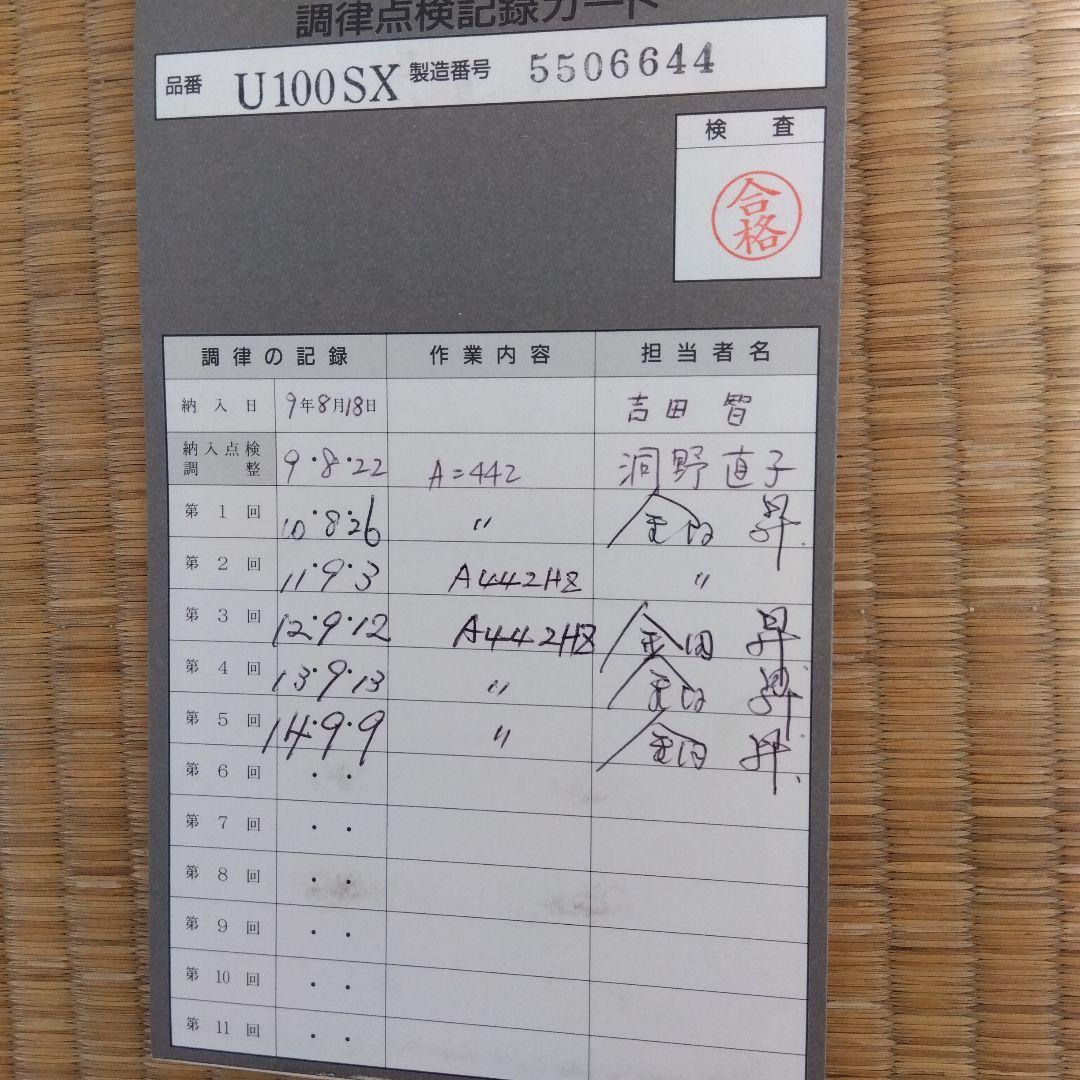 調律点検記録カード
品番 U100SX 製造番号 5506644
検査
合格
調律の記録 作業内容 担当者名
納入日 9年8月18日 吉田 智
納入点検調整 9・8・22 A=442 洞野直子
第1回 10・8・26 〃 昇
第2回 11・9・3 A442HZ 〃
第3回 12・9・12 A442HZ 金田 昇
第4回 13・9・13 〃 昇
第5回 14・9・9 〃 昇
第6回 ・ ・
第7回 ・ ・
第8回 ・ ・
第9回 ・ ・
第10回 ・ ・
第11回 ・ ・